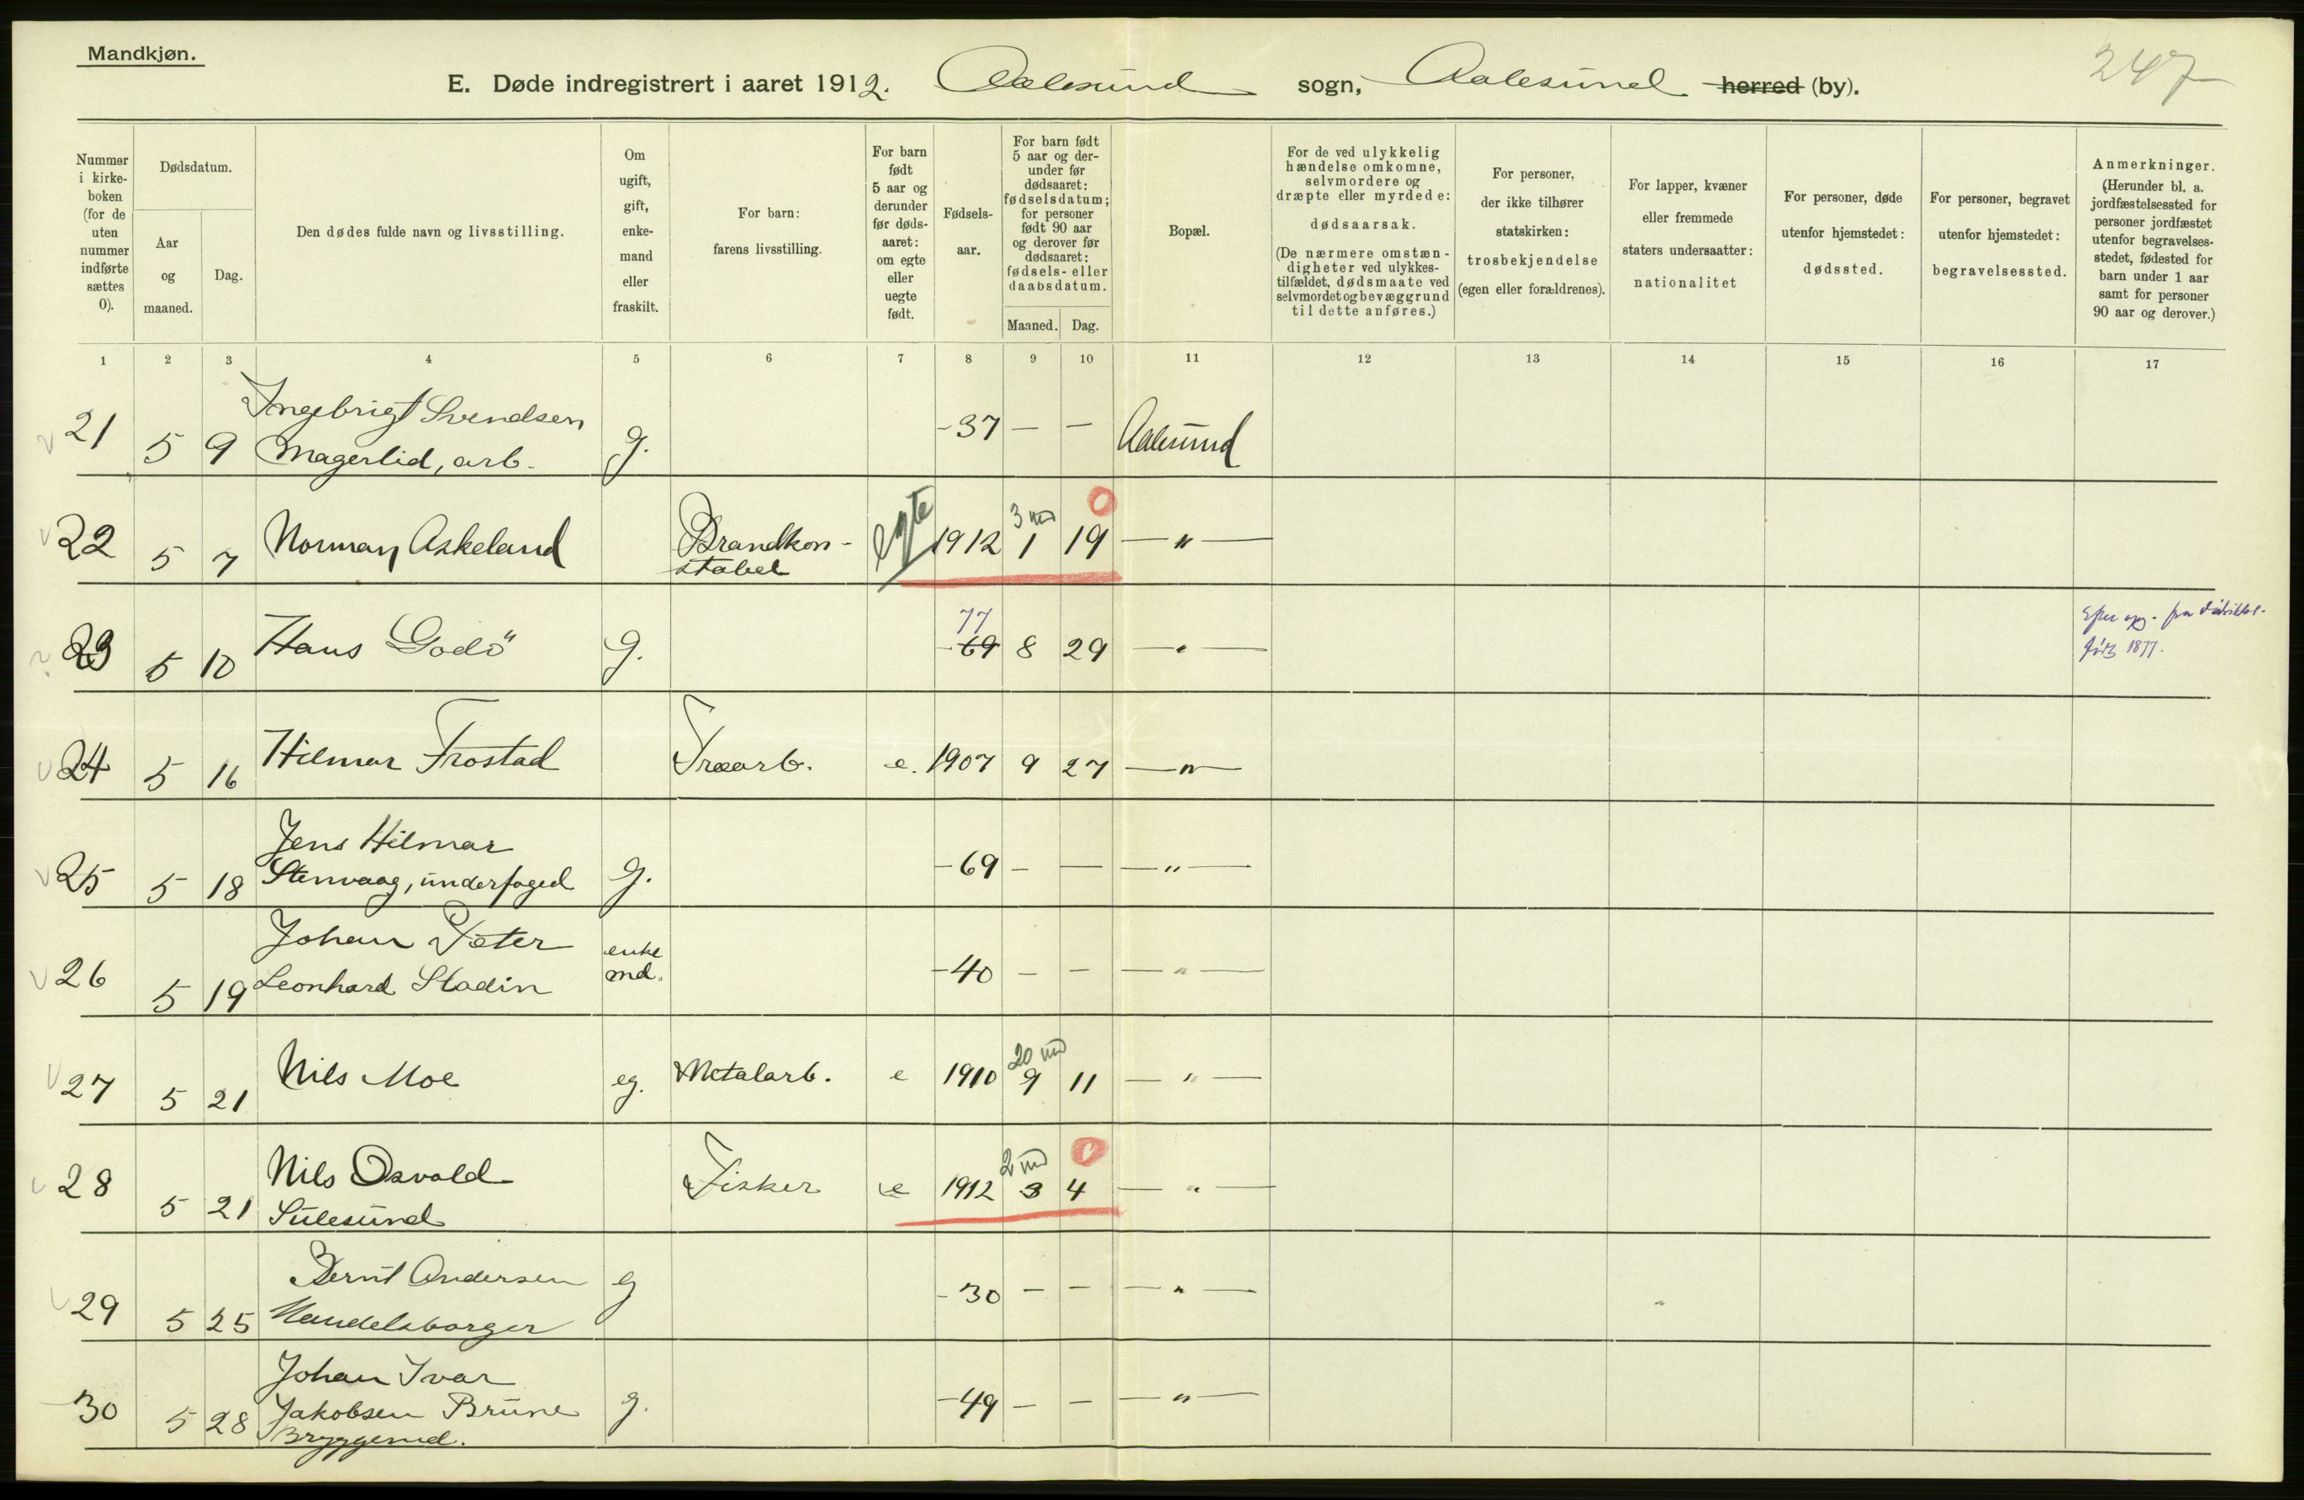 Mandkjøn.
247
E. Døde indregistrert i aaret 1912. Aalesund sogn, Aalesund herred (by).
Nummer i kirke-boken (for de uten nummer indførte sættes 0).
Dødsdatum.
Aar og maaned.
Dag.
Den dødes fulde navn og livsstilling.
Om ugift, gift, enke-mand eller fraskilt.
For barn: farens livsstilling.
For barn født 5 aar og derunder før døds-aaret: om egte eller uegte født.
Fødsels-aar.
For barn født 5 aar og der-under før dødsaaret: fødselsdatum; for personer født 90 aar og derover før dødsaaret: fødsels- eller daabsdatum.
Maaned. Dag.
Bopæl.
For de ved ulykkelig hændelse omkomne, selvmordere og dræpte eller myrdede: dødsaarsak. (De nærmere omstæn-digheter ved ulykkes-tilfældet, dødsmaate ved selvmordet og bevæggrund til dette anføres.)
For personer, der ikke tilhører statskirken: trosbekjendelse (egen eller forældrenes).
For lapper, kvæner eller fremmede staters undersaatter: nationalitet
For personer, døde utenfor hjemstedet: dødssted.
For personer, begravet utenfor hjemstedet: begravelsessted.
Anmerkninger. (Herunder bl. a. jordfæstelsessted for personer jordfæstet utenfor begravelses-stedet, fødested for barn under 1 aar samt for personer 90 aar og derover.)
1 2 3 4 5 6 7 8 9 10 11 12 13 14 15 16 17
Ingebrigt Svendsen
21 5 9 Magerlid, arb. g. -37 — — Aalesund
3 md 0
22 5 7 Norman Askeland Brandkon-stabel egte 1912 1 19 — " —
77
23 5 10 Hans Godö g. -69 8 29 — " — fra
født 1877.
24 5 16 Hilmar Frostad Træarb. e. 1907 9 27 — " —
Jens Hilmar
25 5 18 Stenvaag, underfoged g. -69 — — — " —
Johan Peter
26 5 19 Leonhard Stadin enke md. -40 — — — " —
20 md
27 5 21 Nils Moe eg. Metalarb. e 1910 9 11 — " —
2 md 0
28 5 21 Nils Osvald Fisker e 1912 3 4 — " —
Sulesund
Bernt Andersen
29 5 25 Handelsborger g -30 — — — " —
Johan Ivar
30 5 28 Jakobsen Brune g. -49 — — — " —
Bryggemd.